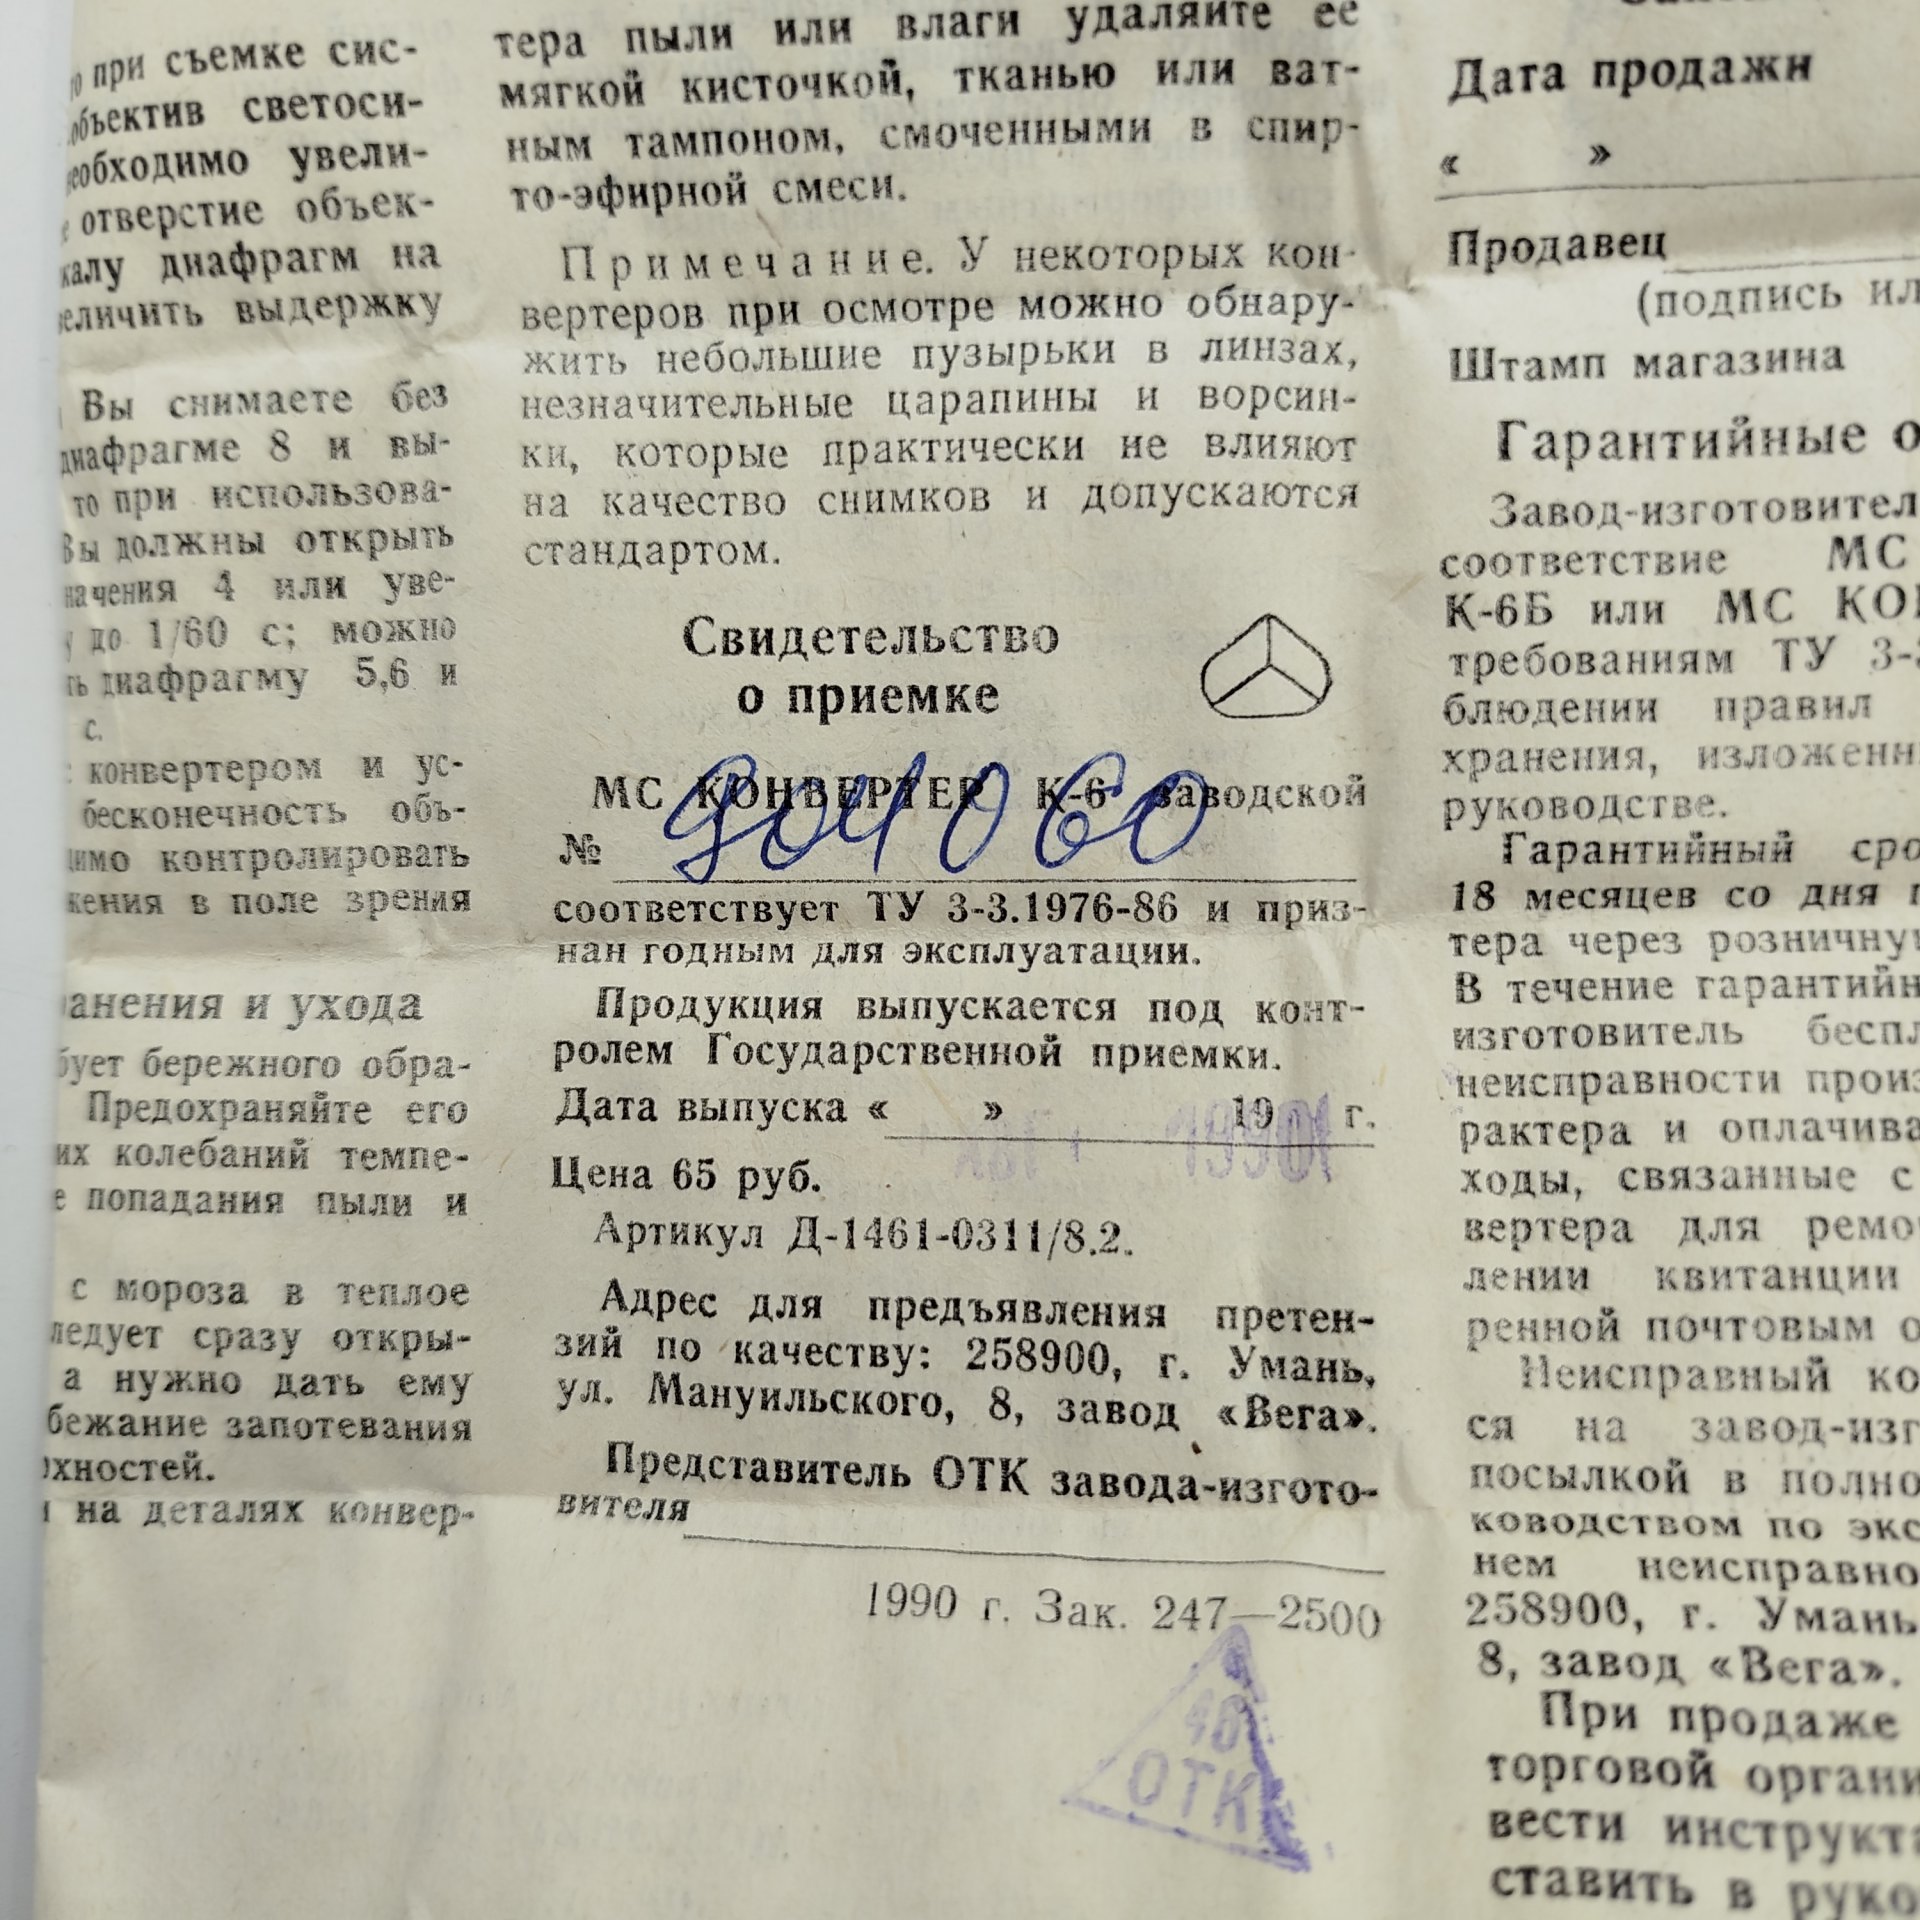 при съемке сис-
объектив светоси-
необходимо увели-
отверстие объек-
калу диафрагм на
величить выдержку
Вы снимаете без
диафрагме 8 и вы-
то при использова-
Вы должны открыть
начения 4 или уве-
до 1/60 с; можно
ть диафрагму 5,6 и
с.
с конвертером и ус-
бесконечность объ-
димо контролировать
жения в поле зрения
ранения и ухода
бует бережного обра-
Предохраняйте его
их колебаний темпе-
е попадания пыли и
с мороза в теплое
ледует сразу откры-
а нужно дать ему
бежание запотевания
рхностей.
и на деталях конвер-
тера пыли или влаги удаляйте ее
мягкой кисточкой, тканью или ват-
ным тампоном, смоченными в спир-
то-эфирной смеси.
Примечание. У некоторых кон-
вертеров при осмотре можно обнару-
жить небольшие пузырьки в линзах,
незначительные царапины и ворсин-
ки, которые практически не влияют
на качество снимков и допускаются
стандартом.
Свидетельство
о приемке
МС КОНВЕРТЕР К-6 заводской
№ 904060
соответствует ТУ 3-3.1976-86 и приз-
нан годным для эксплуатации.
Продукция выпускается под конт-
ролем Государственной приемки.
Дата выпуска « » 19 г.
1990
Цена 65 руб.
Артикул Д-1461-0311/8.2.
Адрес для предъявления претен-
зий по качеству: 258900, г. Умань,
ул. Мануильского, 8, завод «Вега».
Представитель ОТК завода-изгото-
вителя
1990 г. Зак. 247—2500
ОТК
Дата продажи
« »
Продавец
(подпись ил
Штамп магазина
Гарантийные о
Завод-изготовител
соответствие МС
К-6Б или МС КОН
требованиям ТУ 3-3
блюдении правил
хранения, изложенн
руководстве.
Гарантийный сро
18 месяцев со дня п
тера через розничну
В течение гарантийн
изготовитель беспл
неисправности произ
рактера и оплачива
ходы, связанные с
вертера для ремо
лении квитанции
ренной почтовым о
Неисправный ко
ся на завод-изг
посылкой в полно
ководством по экс
нем неисправно
258900, г. Умань
8, завод «Вега».
При продаже
торговой органи
вести инструкта
ставить в руко